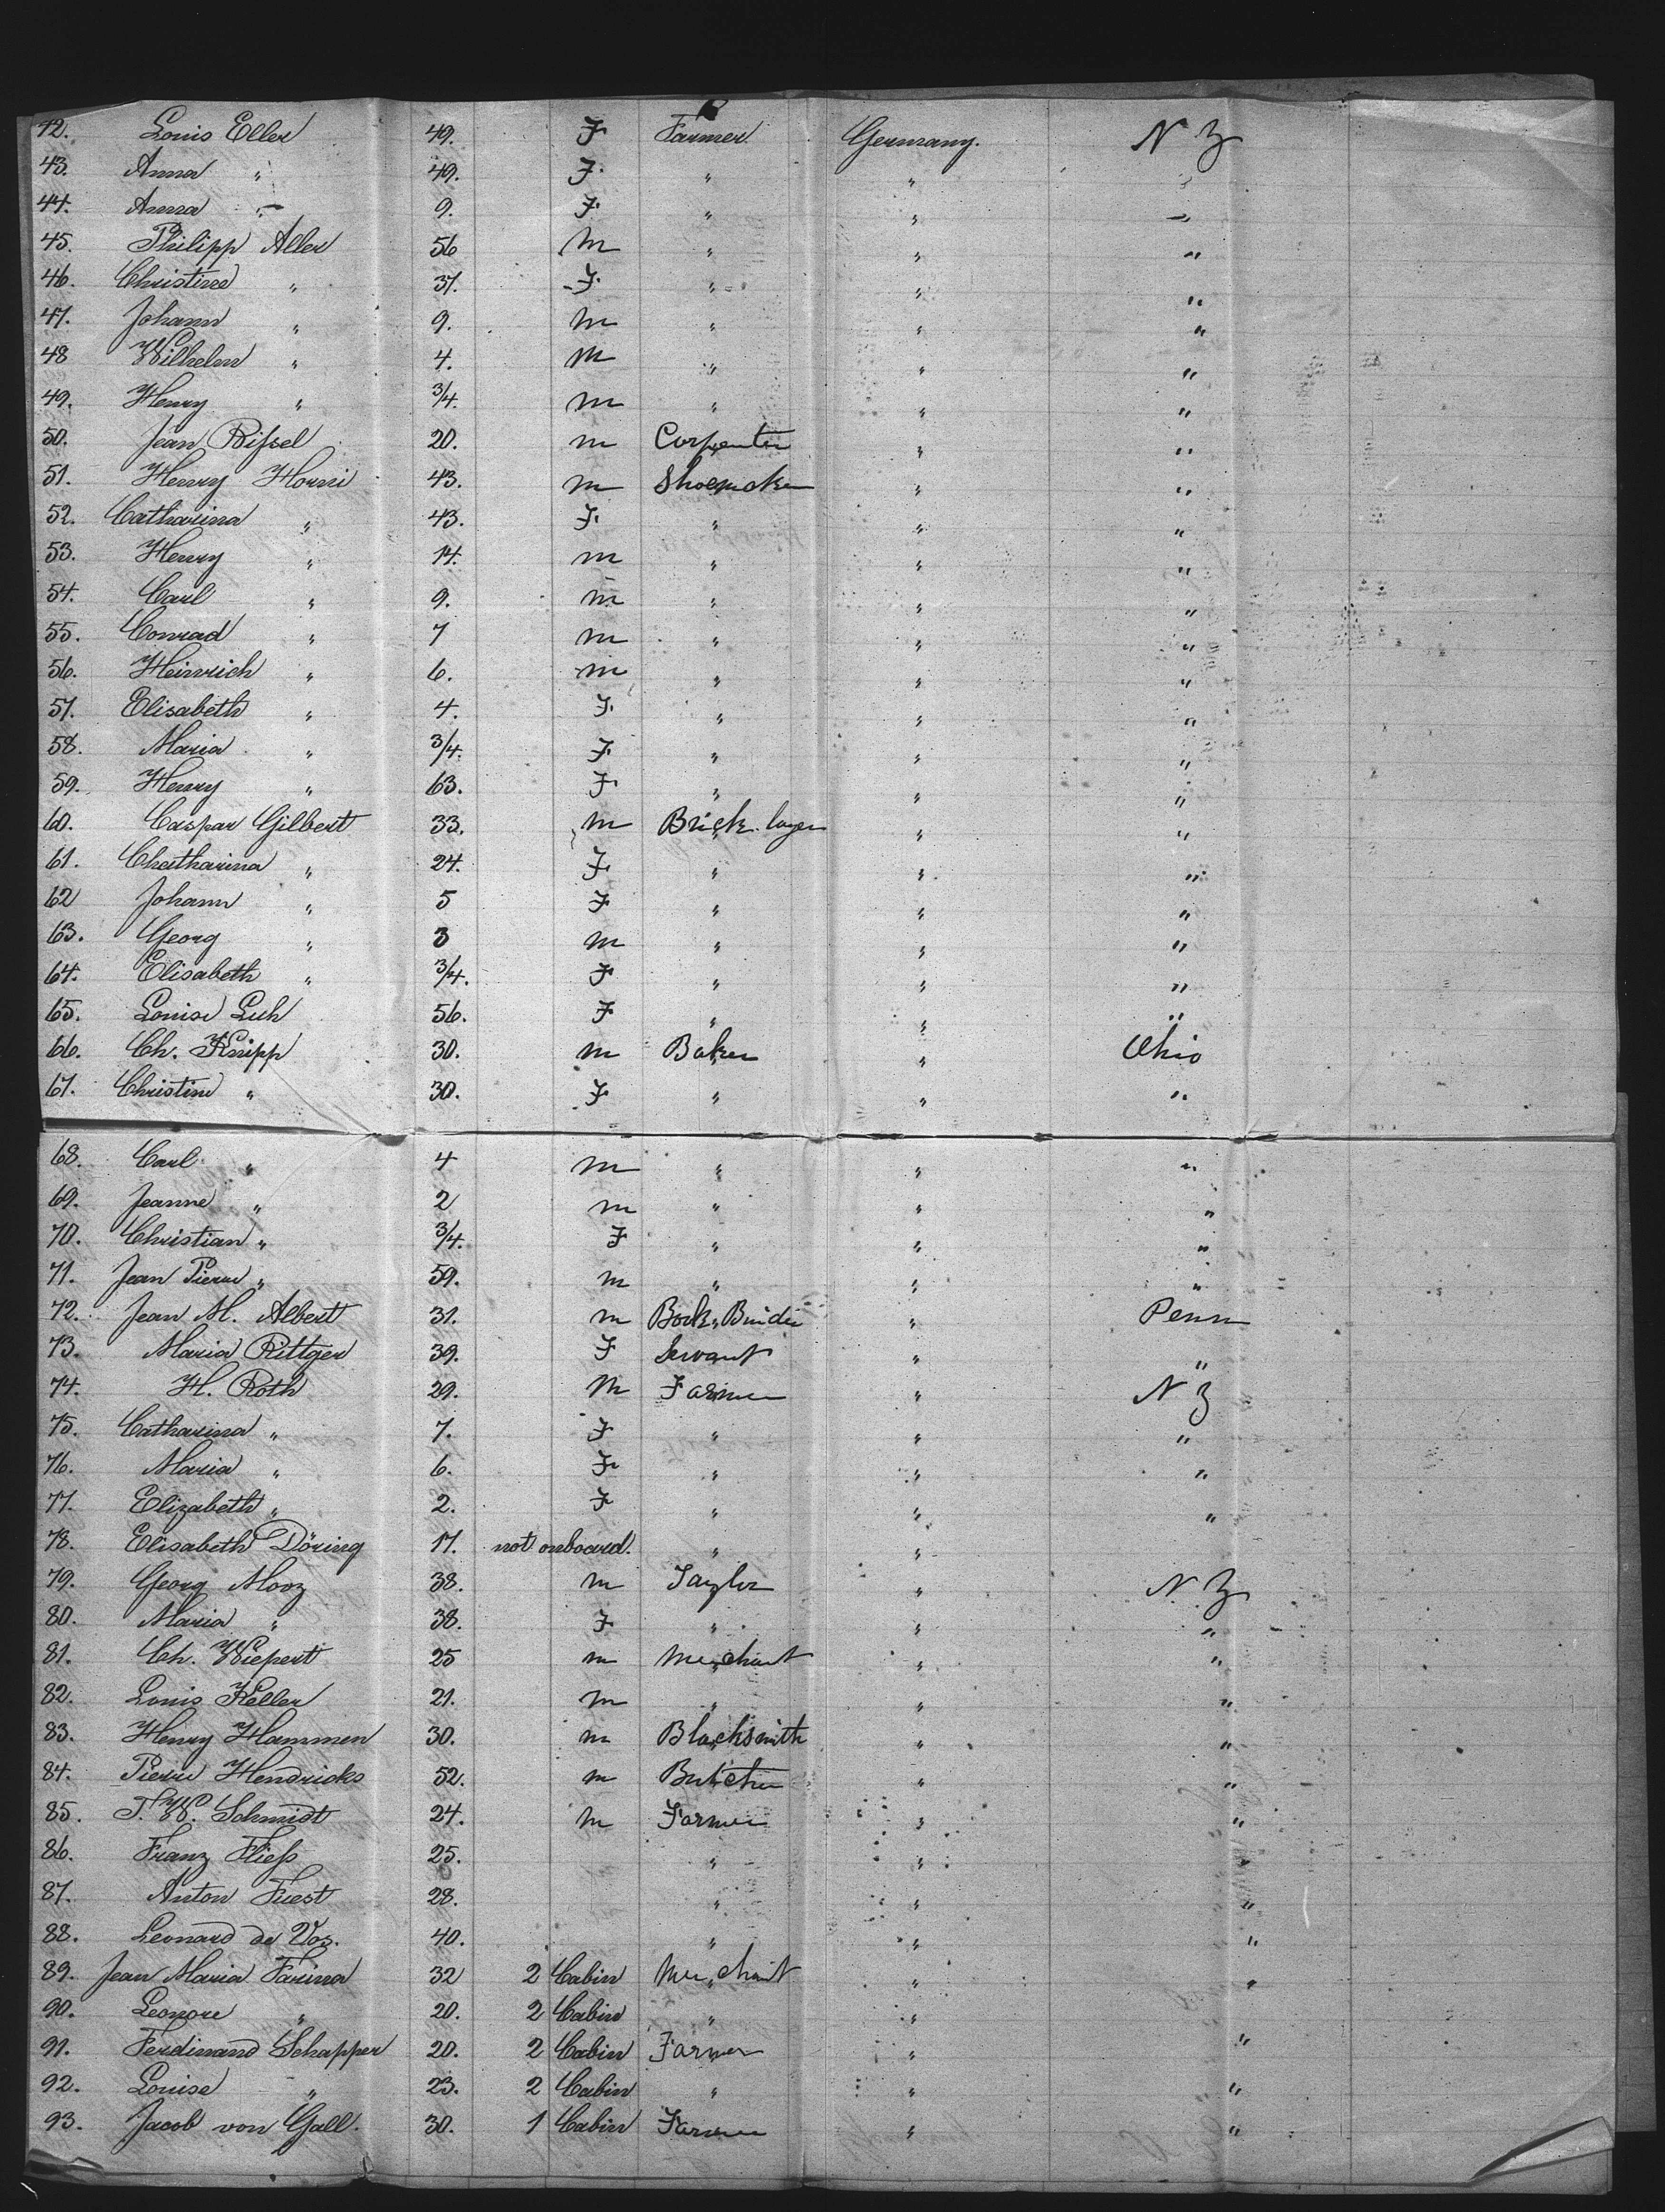 42. Louis Eller 49. F Farmer Germany. N Y
43. Anna " 49. F. " " "
44. Anna " 9. F. " " "
45. Philipp Aller 56 M " " "
46. Christine " 37. F. " " "
47. Johann " 9. M " " "
48 Wilhelm " 4. M " " "
49. Henry " 3/4. M " " "
50. Jean Rissel 20. M Carpenter " "
51. Henry Horni 43. M Shoemaker " "
52. Catharina " 43. F. " " "
53. Henry " 14. M " " "
54. Carl " 9. M " " "
55. Conrad " 7 M " " "
56. Heinrich " 6. M " " "
57. Elisabeth " 4. F. " " "
58. Maria " 3/4. F. " " "
59. Henry " 63. F " " "
60. Caspar Gilbert 33. M Brick layer " "
61. Chatharina " 24. F. " " "
62 Johann " 5 F " " "
63. Georg " 3 M " " "
64. Elisabeth " 3/4. F " " "
65. Louise Luh 56. F " " "
66. Ch. Knipp 30. M Baker " Ohio
67. Christine " 30. F " " "
68. Carl " 4 M " " "
69. Jeanne " 2 M " " "
70. Christian " 3/4. F " " "
71. Jean Pierre " 59. M " " "
72. Jean M. Albert 31. M Book Binder " Penn
73. Maria Rittger 39. F Servant " "
74. H. Roth 29. M Farmer " N Y
75. Catharina " 7. F " " "
76. Maria " 6. F " " "
77. Elizabeth " 2. F " " "
78. Elisabeth Döring 17. not onboard. " "
79. Georg Mooz 38. M Taylor " N. Y
80. Maria " 38. F " " "
81. Ch. Wiepert 25 M Merchant " "
82. Louis Keller 21. M " " "
83. Henry Hammen 30. M Blacksmith " "
84. Pierre Hendricks 52. M Butcher " "
85. T. W. Schmidt 24. M Farmer " "
86. Franz Fliess 25. " " "
87. Anton Fuest 28. " " "
88. Leonard de Vos. 40. " " "
89. Jean Maria Farina 32 2 Cabin Merchant " "
90. Leonore " 20. 2 Cabin " "
91. Ferdinand Schapper 20. 2 Cabin Farmer " "
92. Louise " 23. 2 Cabin " " "
93. Jacob von Gall. 30. 1 Cabin Farmer " "